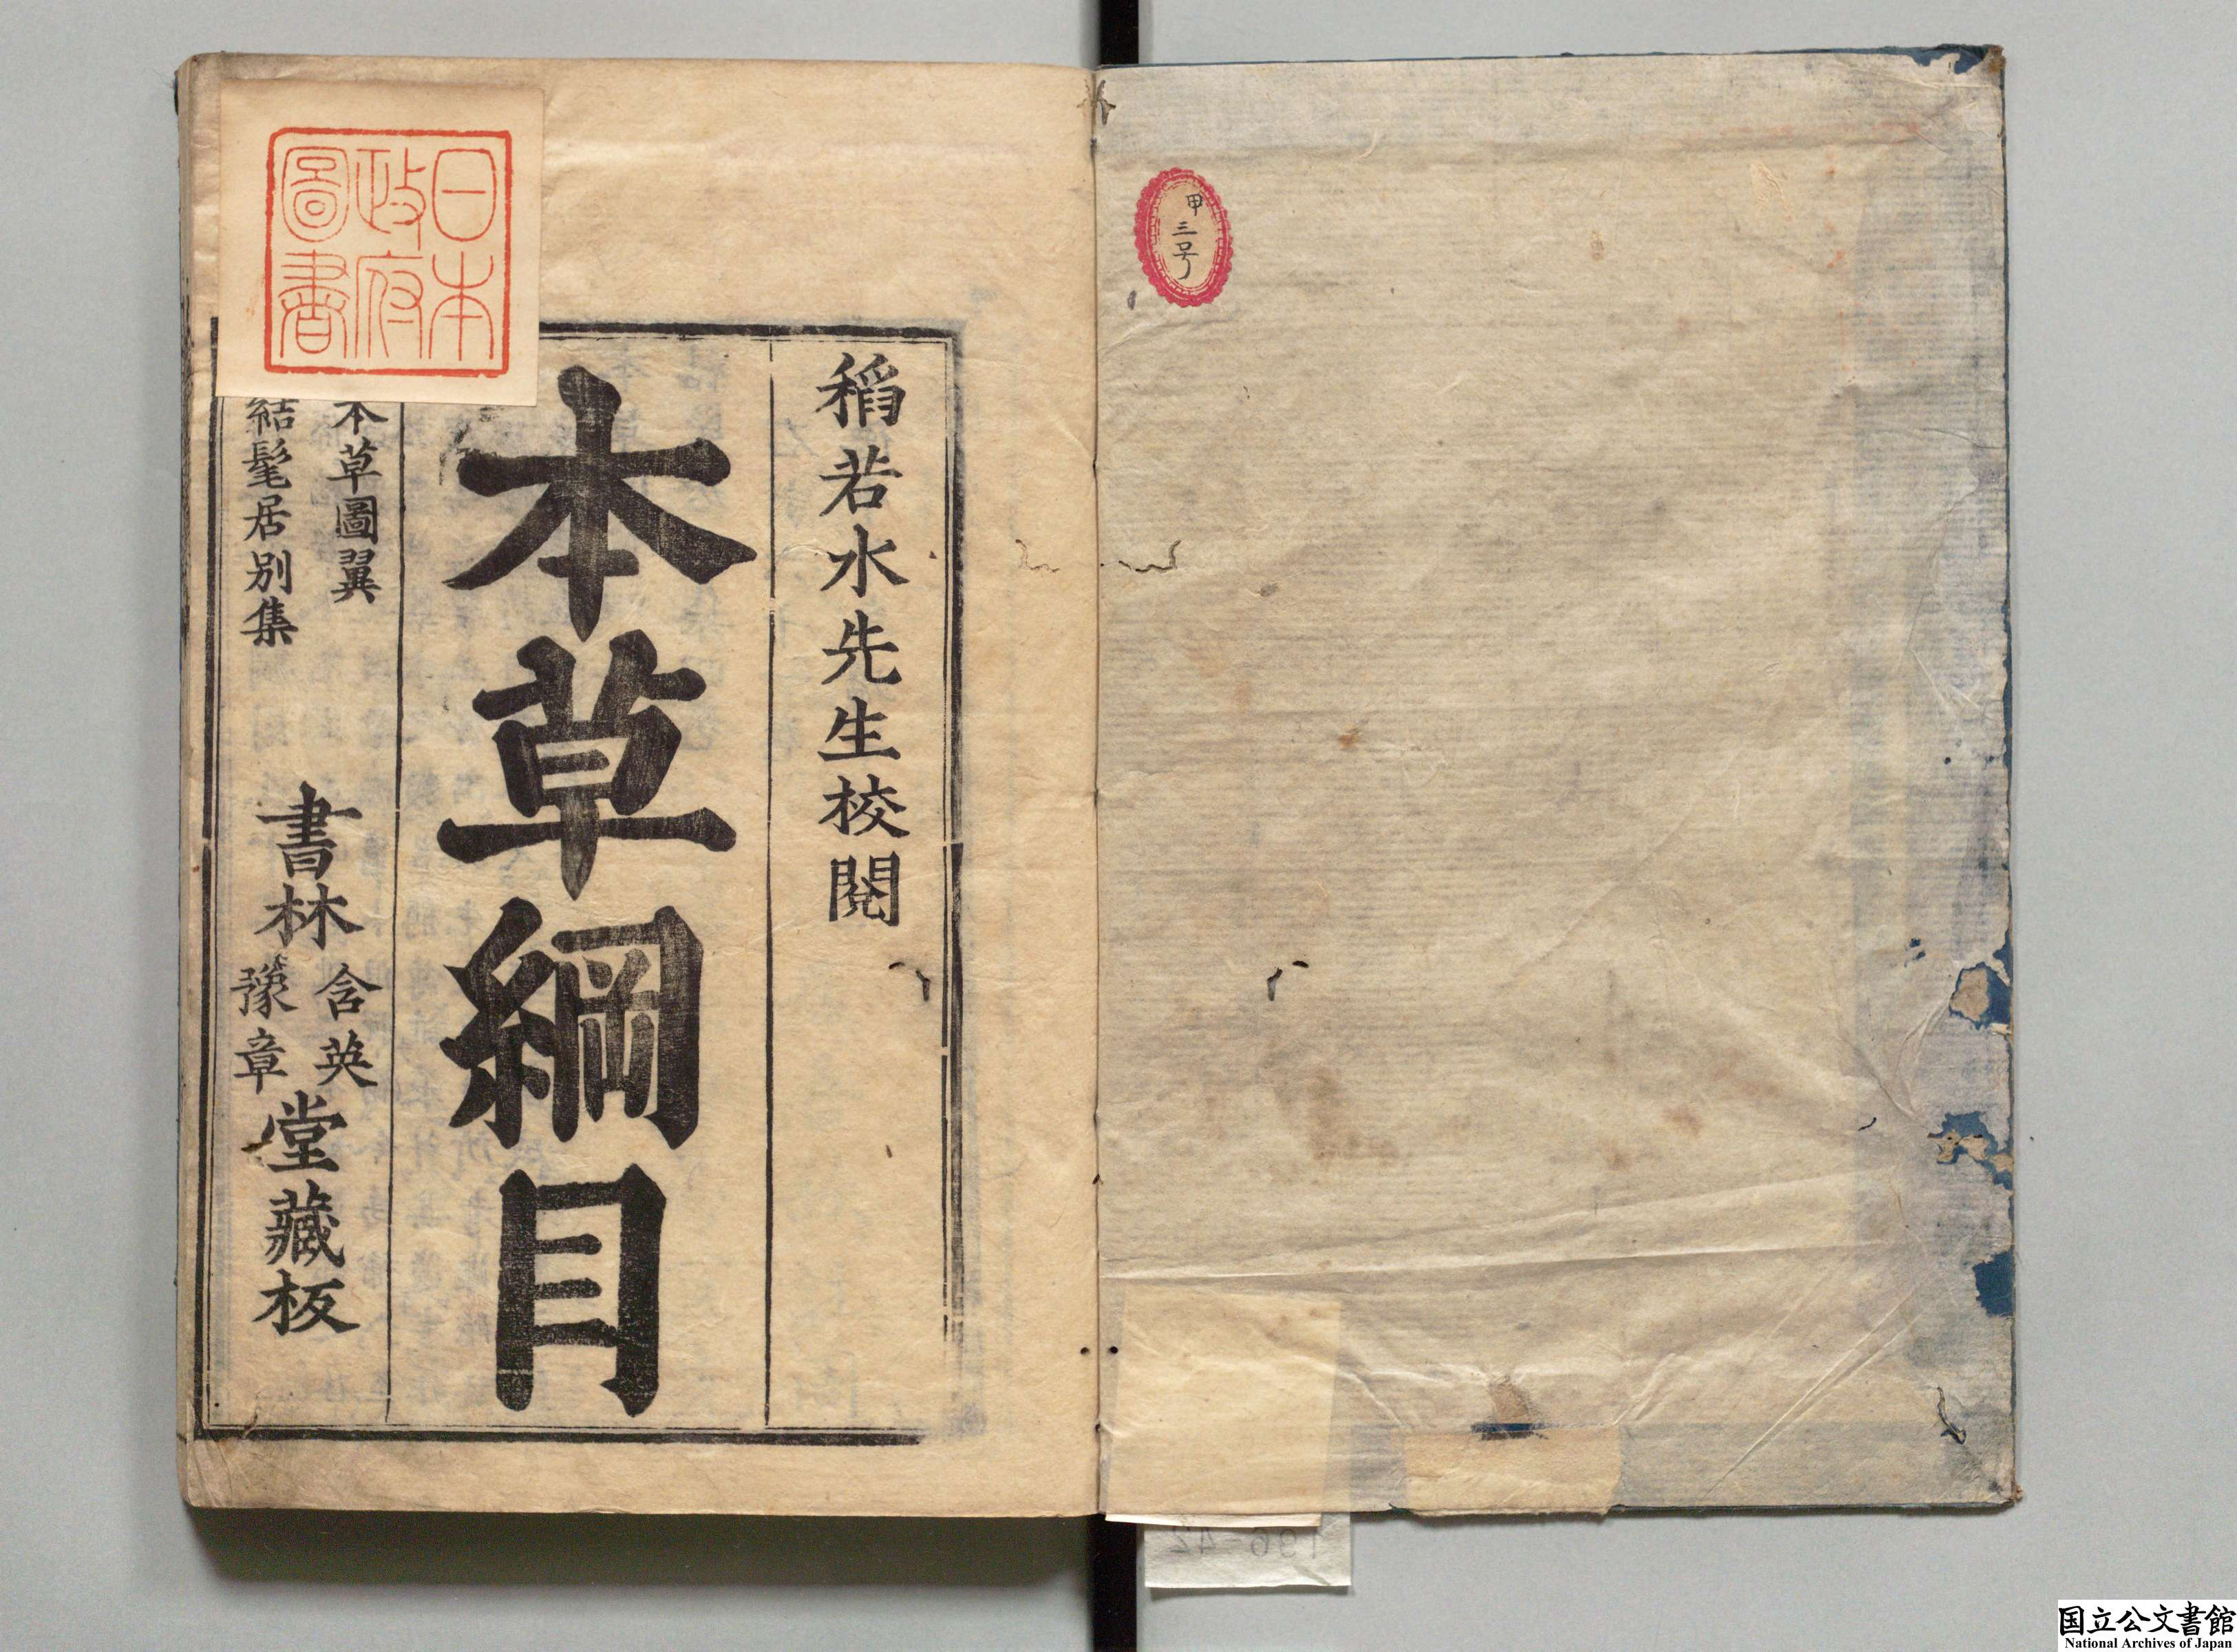 甲
三
号
稻若水先生校閱
本草綱目
本草圖翼
結髦居別集
書林
含英
豫章
堂藏板
日本
政府
圖書
196-42
国立公文書館
National Archives of Japan